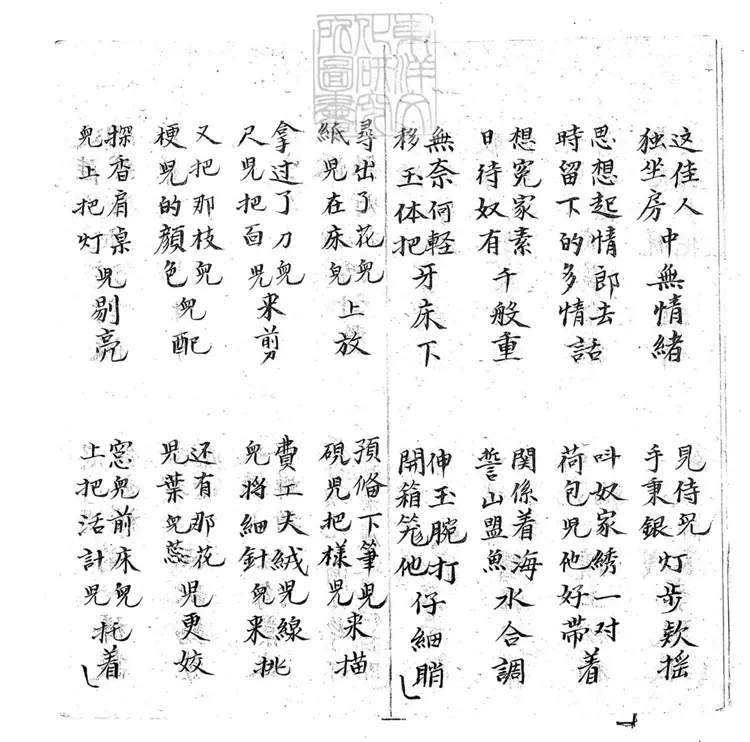 東洋文化研究所圖書
这佳人独坐房中無情緒
見侍兒手秉銀灯步欵摇
思想起情郎去時留下的多情話
叫奴家綉一对荷包児他好带着
想冤家素日待奴有千般重
関係着海誓山盟魚水合調
無奈何輕移玉体把牙床下
伸玉腕打開箱笼他仔細睄
尋出了花兒紙児在床兒上放
預俻下筆兒硯児把樣児来描
拿过了刀兒尺児把面児来剪
費工夫絨児線兒将細針兒来挑
又把那枝兒梗児的顔色兒配
还有那花児葉兒蕊児更姣
探香肩桌兒上把灯児剔亮
窓兒前床兒上把活計児托着